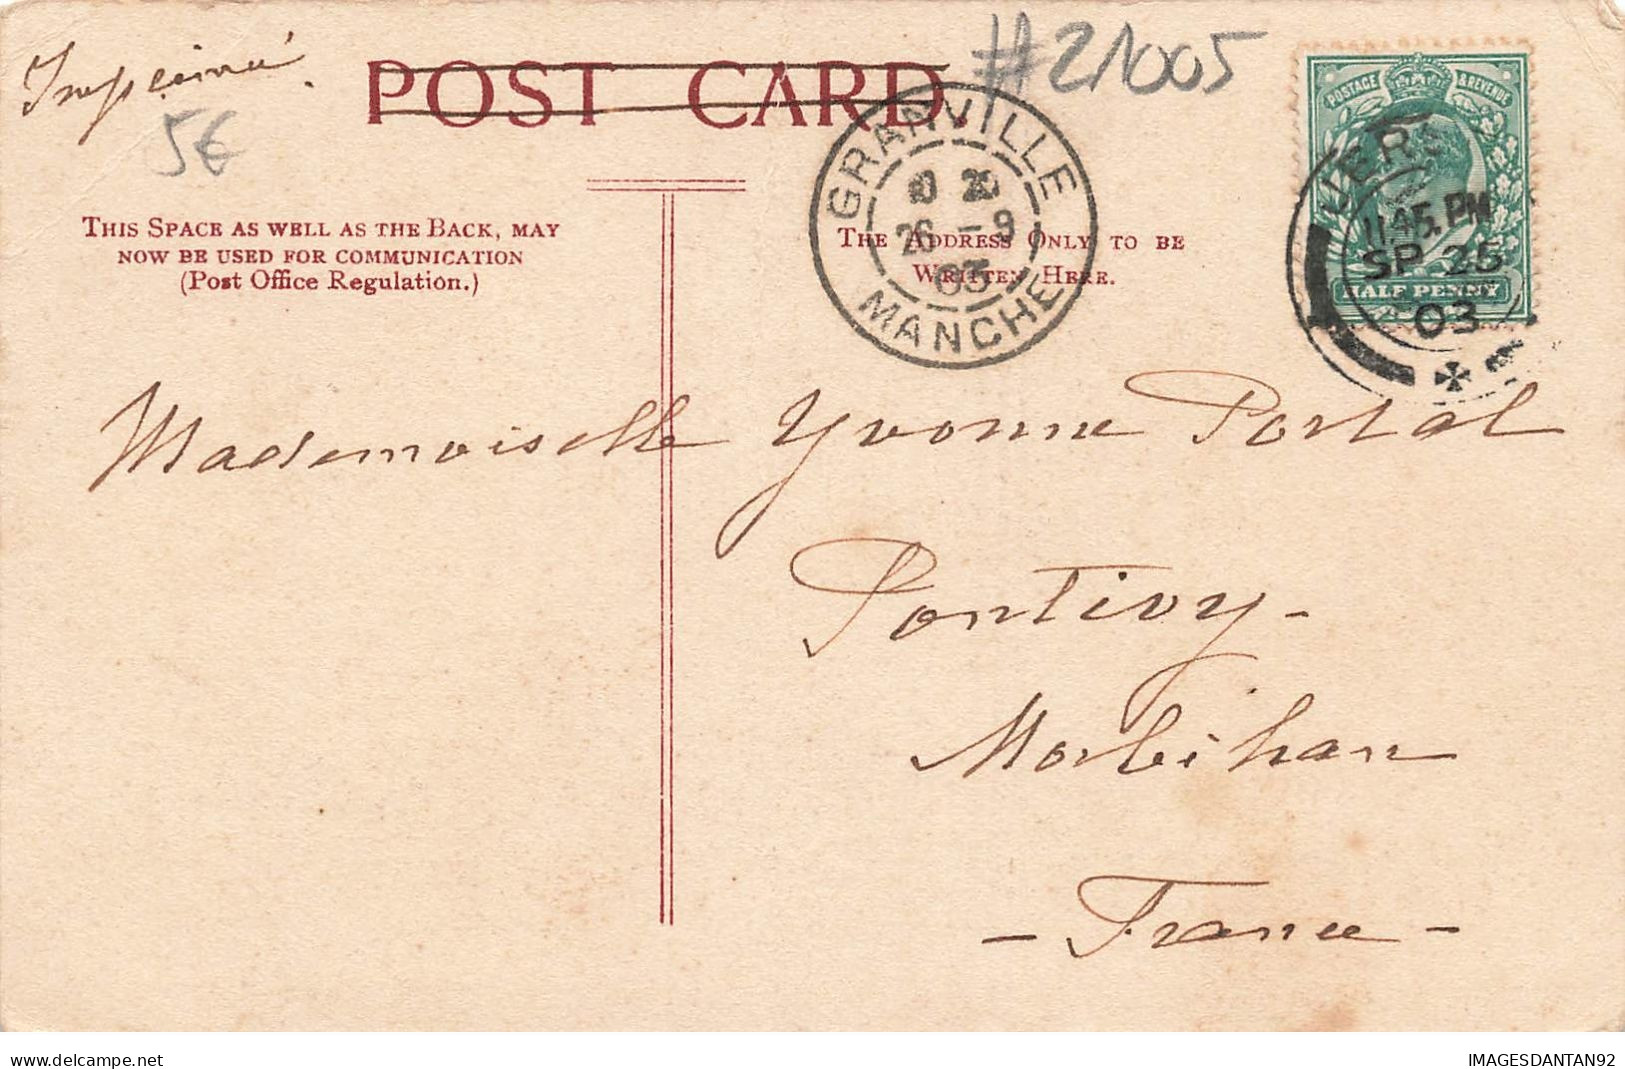 Imprimé
5€
POST CARD.
#21005
THIS SPACE AS WELL AS THE BACK, MAY
NOW BE USED FOR COMMUNICATION
(Post Office Regulation.)
THE ADDRESS ONLY TO BE
WRITTEN HERE.
GRANVILLE
26 -9
03
MANCHE
POSTAGE & REVENUE
HALF PENNY
11.45 PM
SP 25
03
Mademoiselle Yvonne Portal
Pontivy -
Morbihan
- France -
delcampe.net
IMAGESDANTAN92